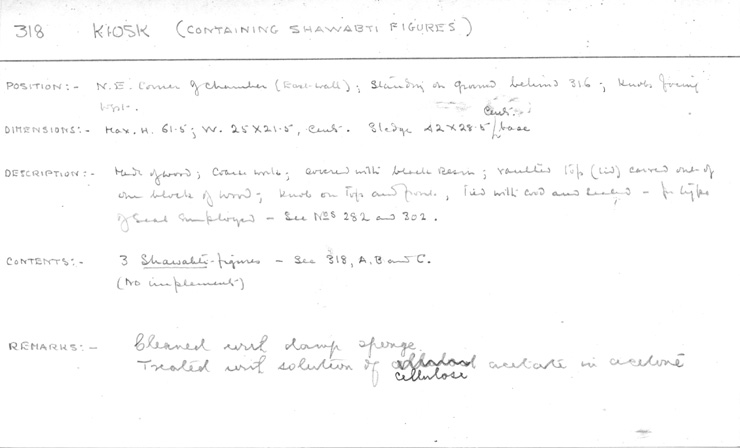 318 KIOSK (CONTAINING SHAWABTI FIGURES)
POSITION:- N.E. Corner of chamber (East wall); Standing on ground behind 316; Knobs facing
West.
cent.
DIMENSIONS:- Max. H. 61.5; W. 25 X 21.5, cent. Sledge 42 X 28.5 / base
DESCRIPTION:- Made of wood; Coarse work; covered with black resin; vaulted top (lid) carved out of
one block of wood; Knob on top and front, Tied with cord and sealed - for type
of seal employed - See Nos 282 and 302.
CONTENTS:- 3 Shawabti-figures - See 318, A, B and C.
(No implements)
REMARKS:- Cleaned with damp sponge.
Treated with solution of acetate in acetone
cellulose